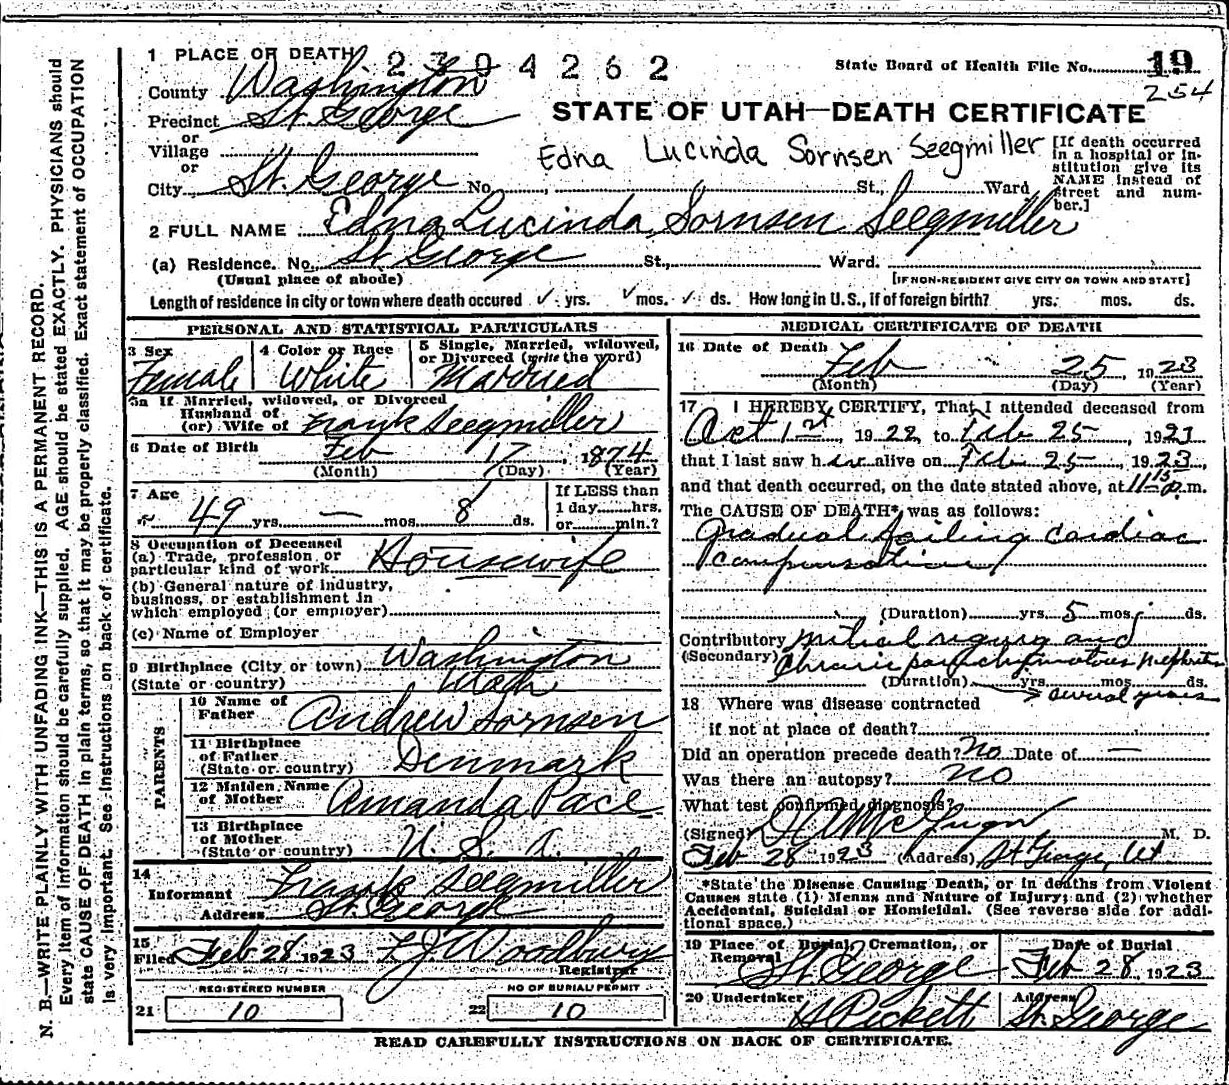 1 PLACE OF DEATH 2304262
State Board of Health File No. 19
254
County Washington
Precinct St. George
or
Village
or
City St. George No. St., Ward
STATE OF UTAH—DEATH CERTIFICATE
Edna Lucinda Sornsen Seegmiller
[If death occurred
in a hospital or in-
stitution give its
NAME instead of
street and num-
ber.]
2 FULL NAME Edna Lucinda Sornsen Seegmiller
(a) Residence. No. St George St., Ward.
(Usual place of abode) [IF NON-RESIDENT GIVE CITY OR TOWN AND STATE]
Length of residence in city or town where death occured ✓ yrs. ✓ mos. ✓ ds. How long in U.S., if of foreign birth? yrs. mos. ds.
PERSONAL AND STATISTICAL PARTICULARS
3 Sex 4 Color or Race 5 Single, Married, widowed,
or Divorced (write the word)
Female White Married
5a If Married, widowed, or Divorced
Husband of
(or) Wife of Frank Seegmiller
6 Date of Birth Feb 17, 1874
(Month) (Day) (Year)
7 Age
49 yrs. — mos. 8 ds.
If LESS than
1 day hrs.
or min.?
8 Occupation of Deceased
(a) Trade, profession, or
particular kind of work Housewife
(b) General nature of industry,
business, or establishment in
which employed (or employer)
(c) Name of Employer
9 Birthplace (City or town) Washington
(State or country) Utah
PARENTS
10 Name of
Father Andrew Sornsen
11 Birthplace
of Father
(State or country) Denmark
12 Maiden Name
of Mother Amanda Pace
13 Birthplace
of Mother
(State or country) U. S. A.
14
Informant Frank Seegmiller
Address St. George
15
Filed Feb 28 1923 F J Woodbury
Registrar
REGISTERED NUMBER NO OF BURIAL PERMIT
21 10 22 10
MEDICAL CERTIFICATE OF DEATH
16 Date of Death Feb 25, 1923
(Month) (Day) (Year)
17 I HEREBY CERTIFY, That I attended deceased from
Oct 1st, 1922 to Feb 25, 1923
that I last saw her alive on Feb 25, 1923,
and that death occurred, on the date stated above, at 11 15 p.m.
The CAUSE OF DEATH* was as follows:
Gradual failing cardiac
compensation
(Duration) yrs. 5 mos. ds.
Contributory Mitral regurg and
(Secondary) Chronic parenchymatous nephritis
(Duration) yrs. mos. ds.
several years
18 Where was disease contracted
if not at place of death?
Did an operation precede death? No Date of —
Was there an autopsy? No
What test confirmed diagnosis?
(Signed) McGregor M. D.
Feb 28 1923 (Address) St George, Ut
*State the Disease Causing Death, or in deaths from Violent
Causes state (1) Means and Nature of Injury; and (2) whether
Accidental, Suicidal or Homicidal. (See reverse side for addi-
tional space.)
19 Place of Burial, Cremation, or Date of Burial
Removal St George Feb 28, 1923
20 Undertaker Address
Pickett St. George
READ CAREFULLY INSTRUCTIONS ON BACK OF CERTIFICATE.
N. B.—WRITE PLAINLY WITH UNFADING INK—THIS IS A PERMANENT RECORD.
Every item of information should be carefully supplied. AGE should be stated EXACTLY. PHYSICIANS should
state CAUSE OF DEATH in plain terms, so that it may be properly classified. Exact statement of OCCUPATION
is very important. See instructions on back of certificate.